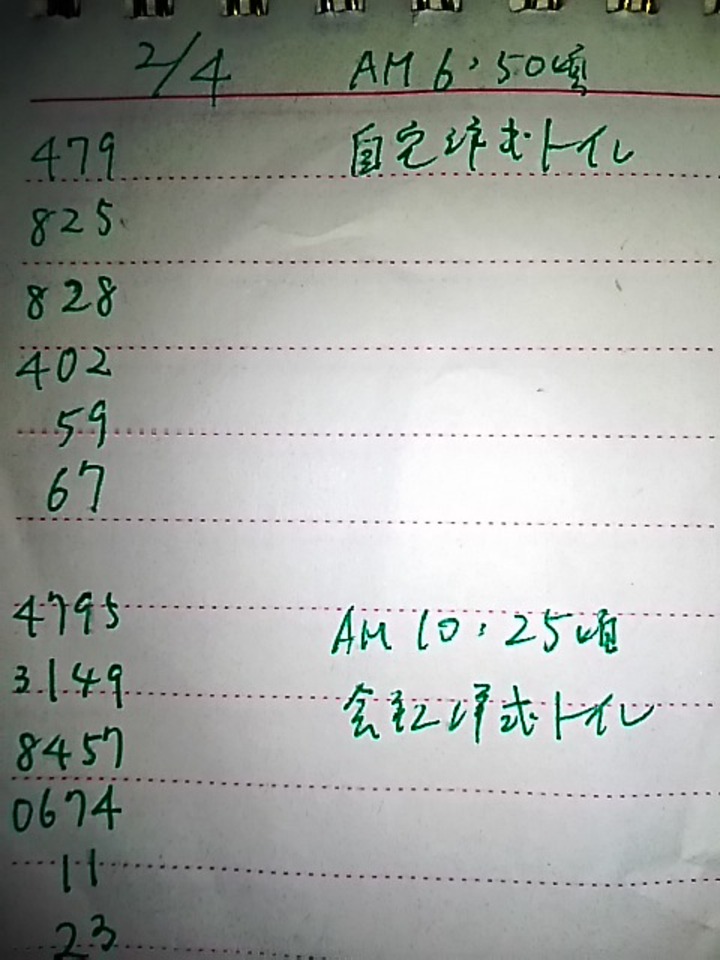 2/4 AM 6:50頃
479 自宅洋式トイレ
825
828
402
59
67
4795 AM 10:25頃
3149 会社洋式トイレ
8457
0674
11
23